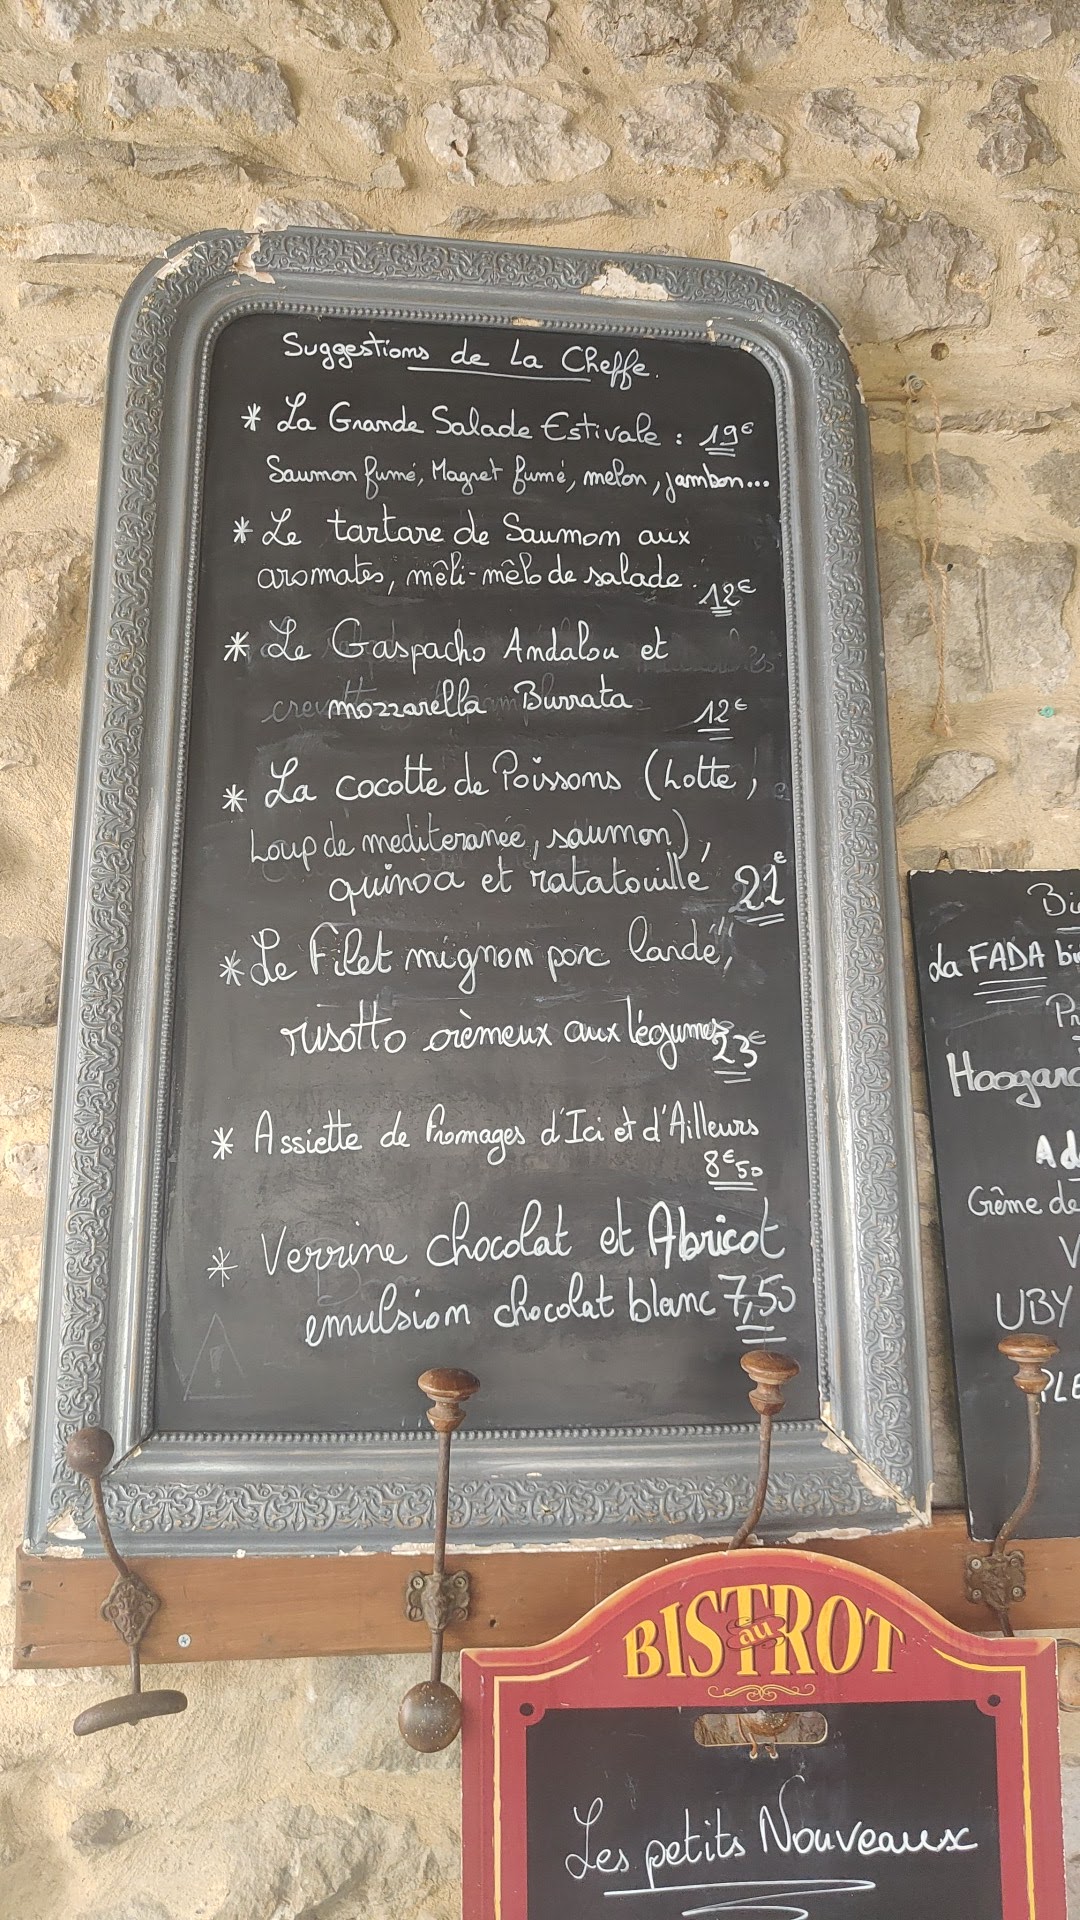 Suggestions de La Cheffe.
* La Grande Salade Estivale : 19€
Saumon fumé, Magret fumé, melon, jambon...
* Le tartare de Saumon aux
aromates, mêli-mêlo de salade. 12€
* Le Gaspacho Andalou et
mozzarella Burrata 12€
* La cocotte de Poissons (Lotte,
Loup de mediteranée, saumon),
quinoa et ratatouille 21€
* Le Filet mignon porc "lardé",
risotto crèmeux aux légumes 23€
* Assiette de Fromages d'Ici et d'Ailleurs
8€50
* Verrine chocolat et Abricot
emulsion chocolat blanc 7,50
La FADA
Hoogard
Gème de
UBY
BISTROT
au
Les petits Nouveaux